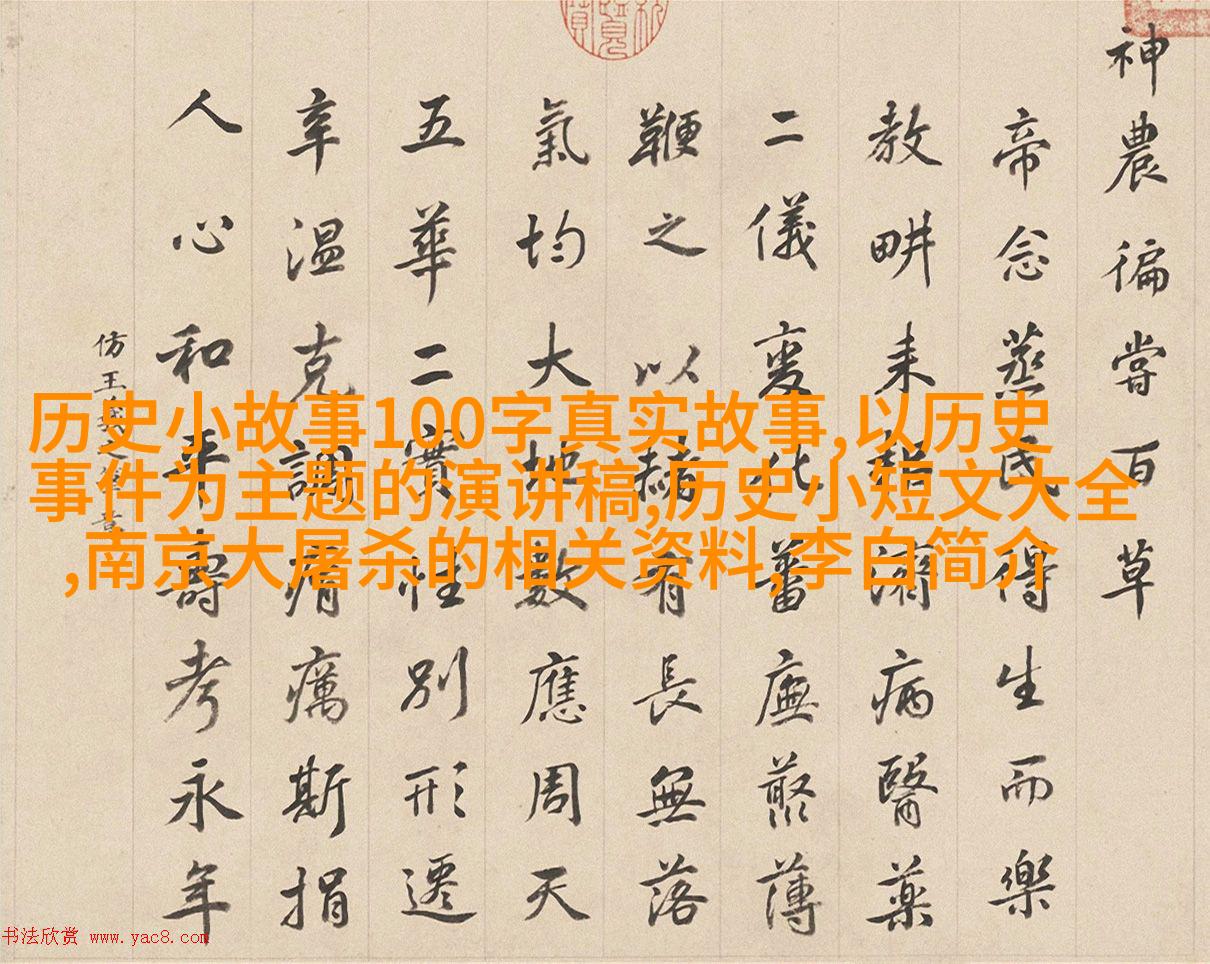 神農徧嘗百草
帝念蒸民得生而樂
教畊耒耜病醫藥
二儀變化蕃廡藂薄
鞭之以赭有長無落
氣均大地數應周天
五華二實性別形遷
辛温克調痟癘斯捐
人心和平壽考永年
仿王羲之筆意
历史小故事100字真实故事,以历史
事件为主题的演讲稿,历史小短文大全
,南京大屠杀的相关资料,李白简介
书法欣赏 www.yac8.com